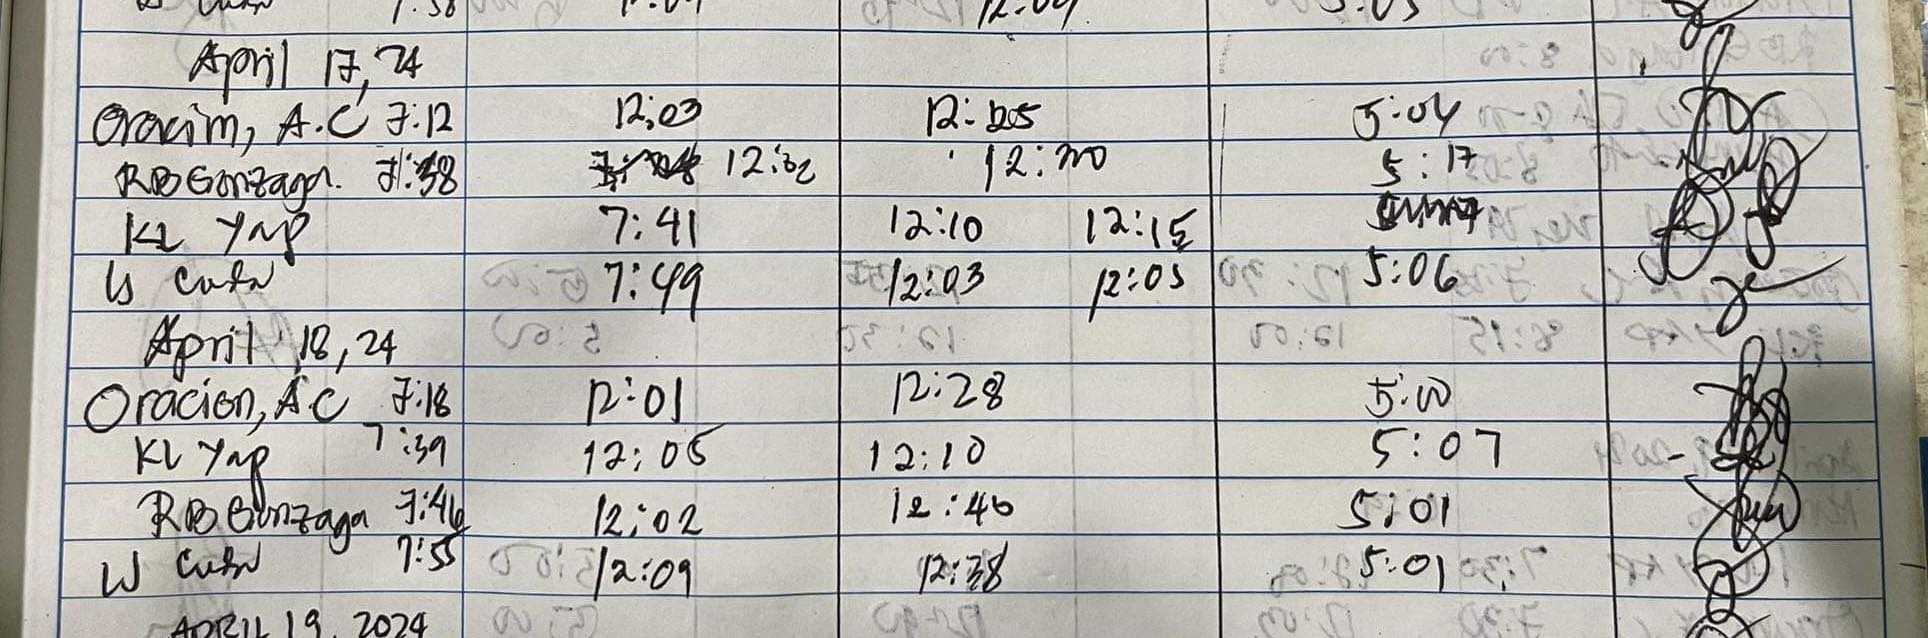 April 17, 24
Oracion, A.C 7:12 12:03 12:25 5:04
RB Gonzaga. 7:38 12:02 12:20 5:17
KL Yap 7:41 12:10 12:15
W 7:49 12:03 12:05 5:06
April 18, 24
Oracion, A.C 7:18 12:01 12:28 5:00
KL Yap 7:39 12:05 12:10 5:07
RB Gonzaga 7:46 12:02 12:40 5:01
W 7:55 12:09 12:38 5:01
APRIL 19, 2024